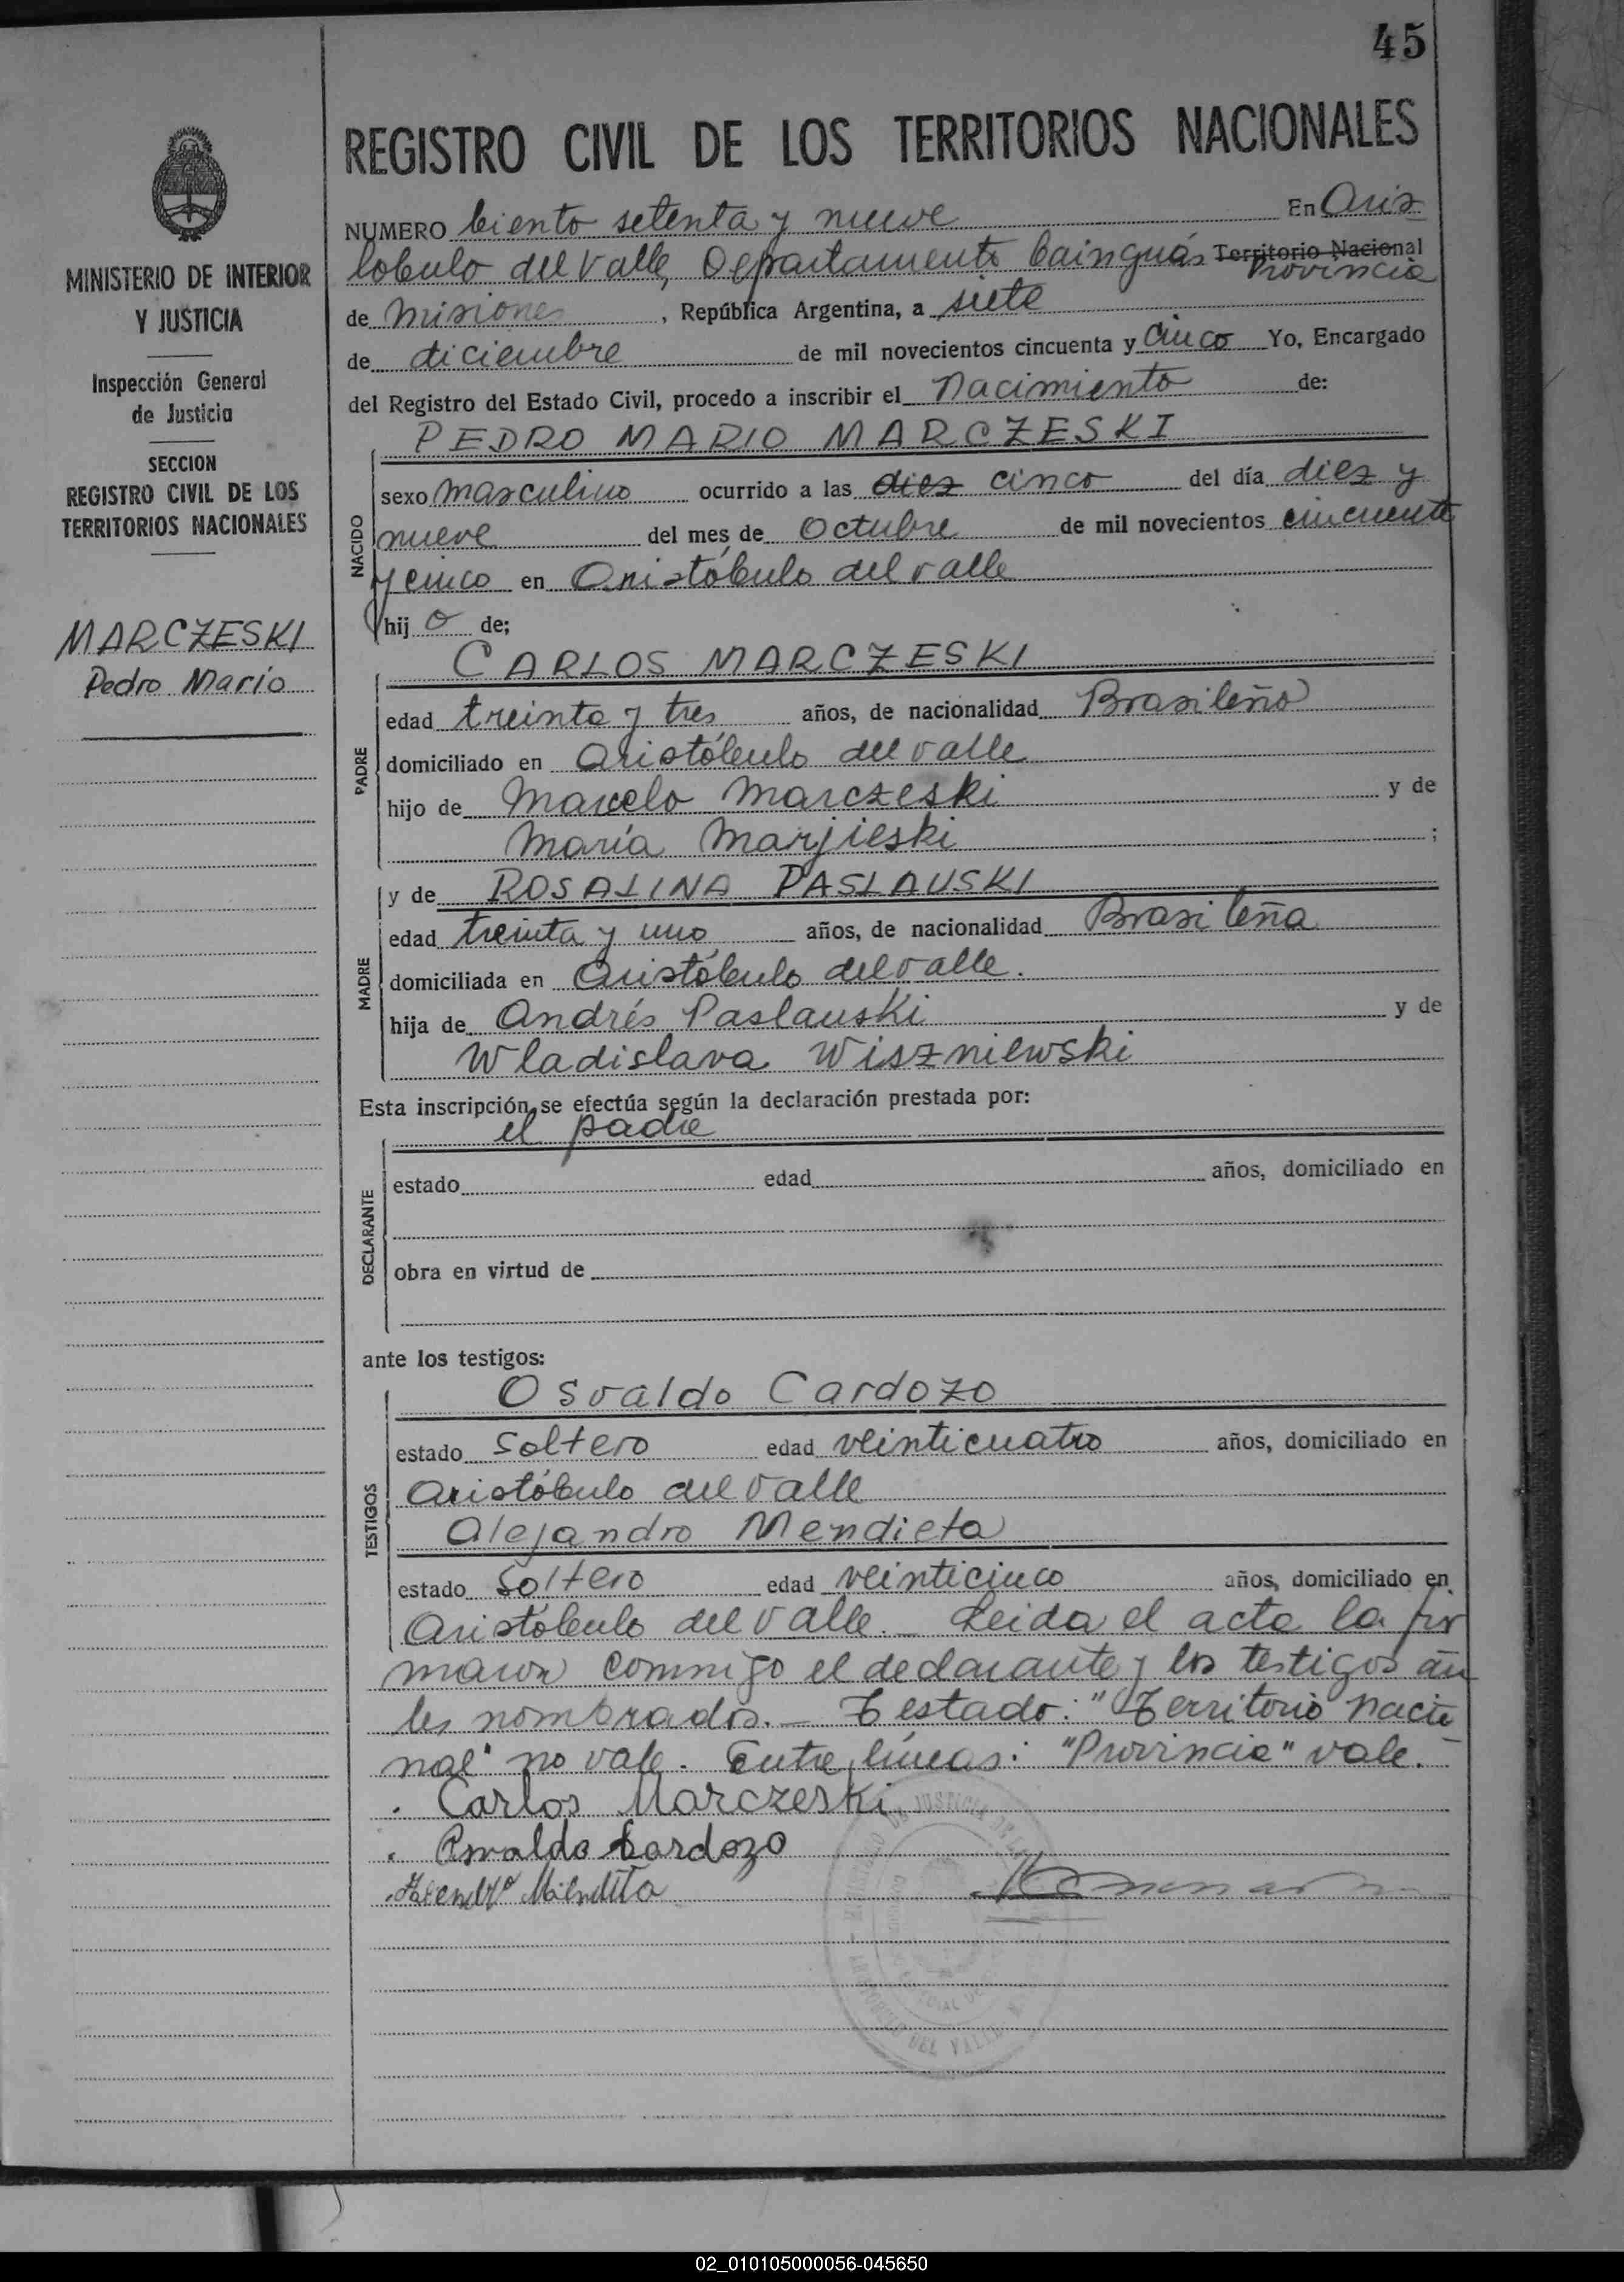 45
REGISTRO CIVIL DE LOS TERRITORIOS NACIONALES
MINISTERIO DE INTERIOR
Y JUSTICIA
Inspección General
de Justicia
SECCION
REGISTRO CIVIL DE LOS
TERRITORIOS NACIONALES
MARCZESKI
Pedro Mario
NUMERO Ciento setenta y nueve En Aris
tobulo del Valle, Departamento Cainguás Territorio Nacional Provincia
de Misiones, República Argentina, a siete
de diciembre de mil novecientos cincuenta y cinco Yo, Encargado
del Registro del Estado Civil, procedo a inscribir el Nacimiento de:
PEDRO MARIO MARCZESKI
NACIDO
sexo masculino ocurrido a las diez cinco del día diez y
nueve del mes de Octubre de mil novecientos cincuenta
y cinco en Aristóbulo del valle
hijo de;
CARLOS MARCZESKI
PADRE
edad treinta y tres años, de nacionalidad Brasileño
domiciliado en Aristóbulo del valle
hijo de Marcelo Marczeski y de
María Marjieski ;
y de ROSALINA PASLAUSKI
MADRE
edad treinta y uno años, de nacionalidad Brasileña
domiciliada en Aristóbulo del valle.
hija de Andrés Paslauski y de
Wladislava Wiszniewski
Esta inscripción se efectúa según la declaración prestada por:
el padre
DECLARANTE
estado edad años, domiciliado en
obra en virtud de
ante los testigos:
Osvaldo Cardozo
TESTIGOS
estado Soltero edad veinticuatro años, domiciliado en
Aristóbulo del Valle
Alejandro Mendieta
estado Soltero edad veinticinco años, domiciliado en
Aristóbulo del Valle.- Leida el acta la fir
maron commigo el declarante y los testigos an
tes nombrados.- Testado: "Territorio Nacio
nal" no vale. Entre líneas: "Provincia" vale.-
Carlos Marczeski
Osvaldo Cardozo
02_010105000056-045650